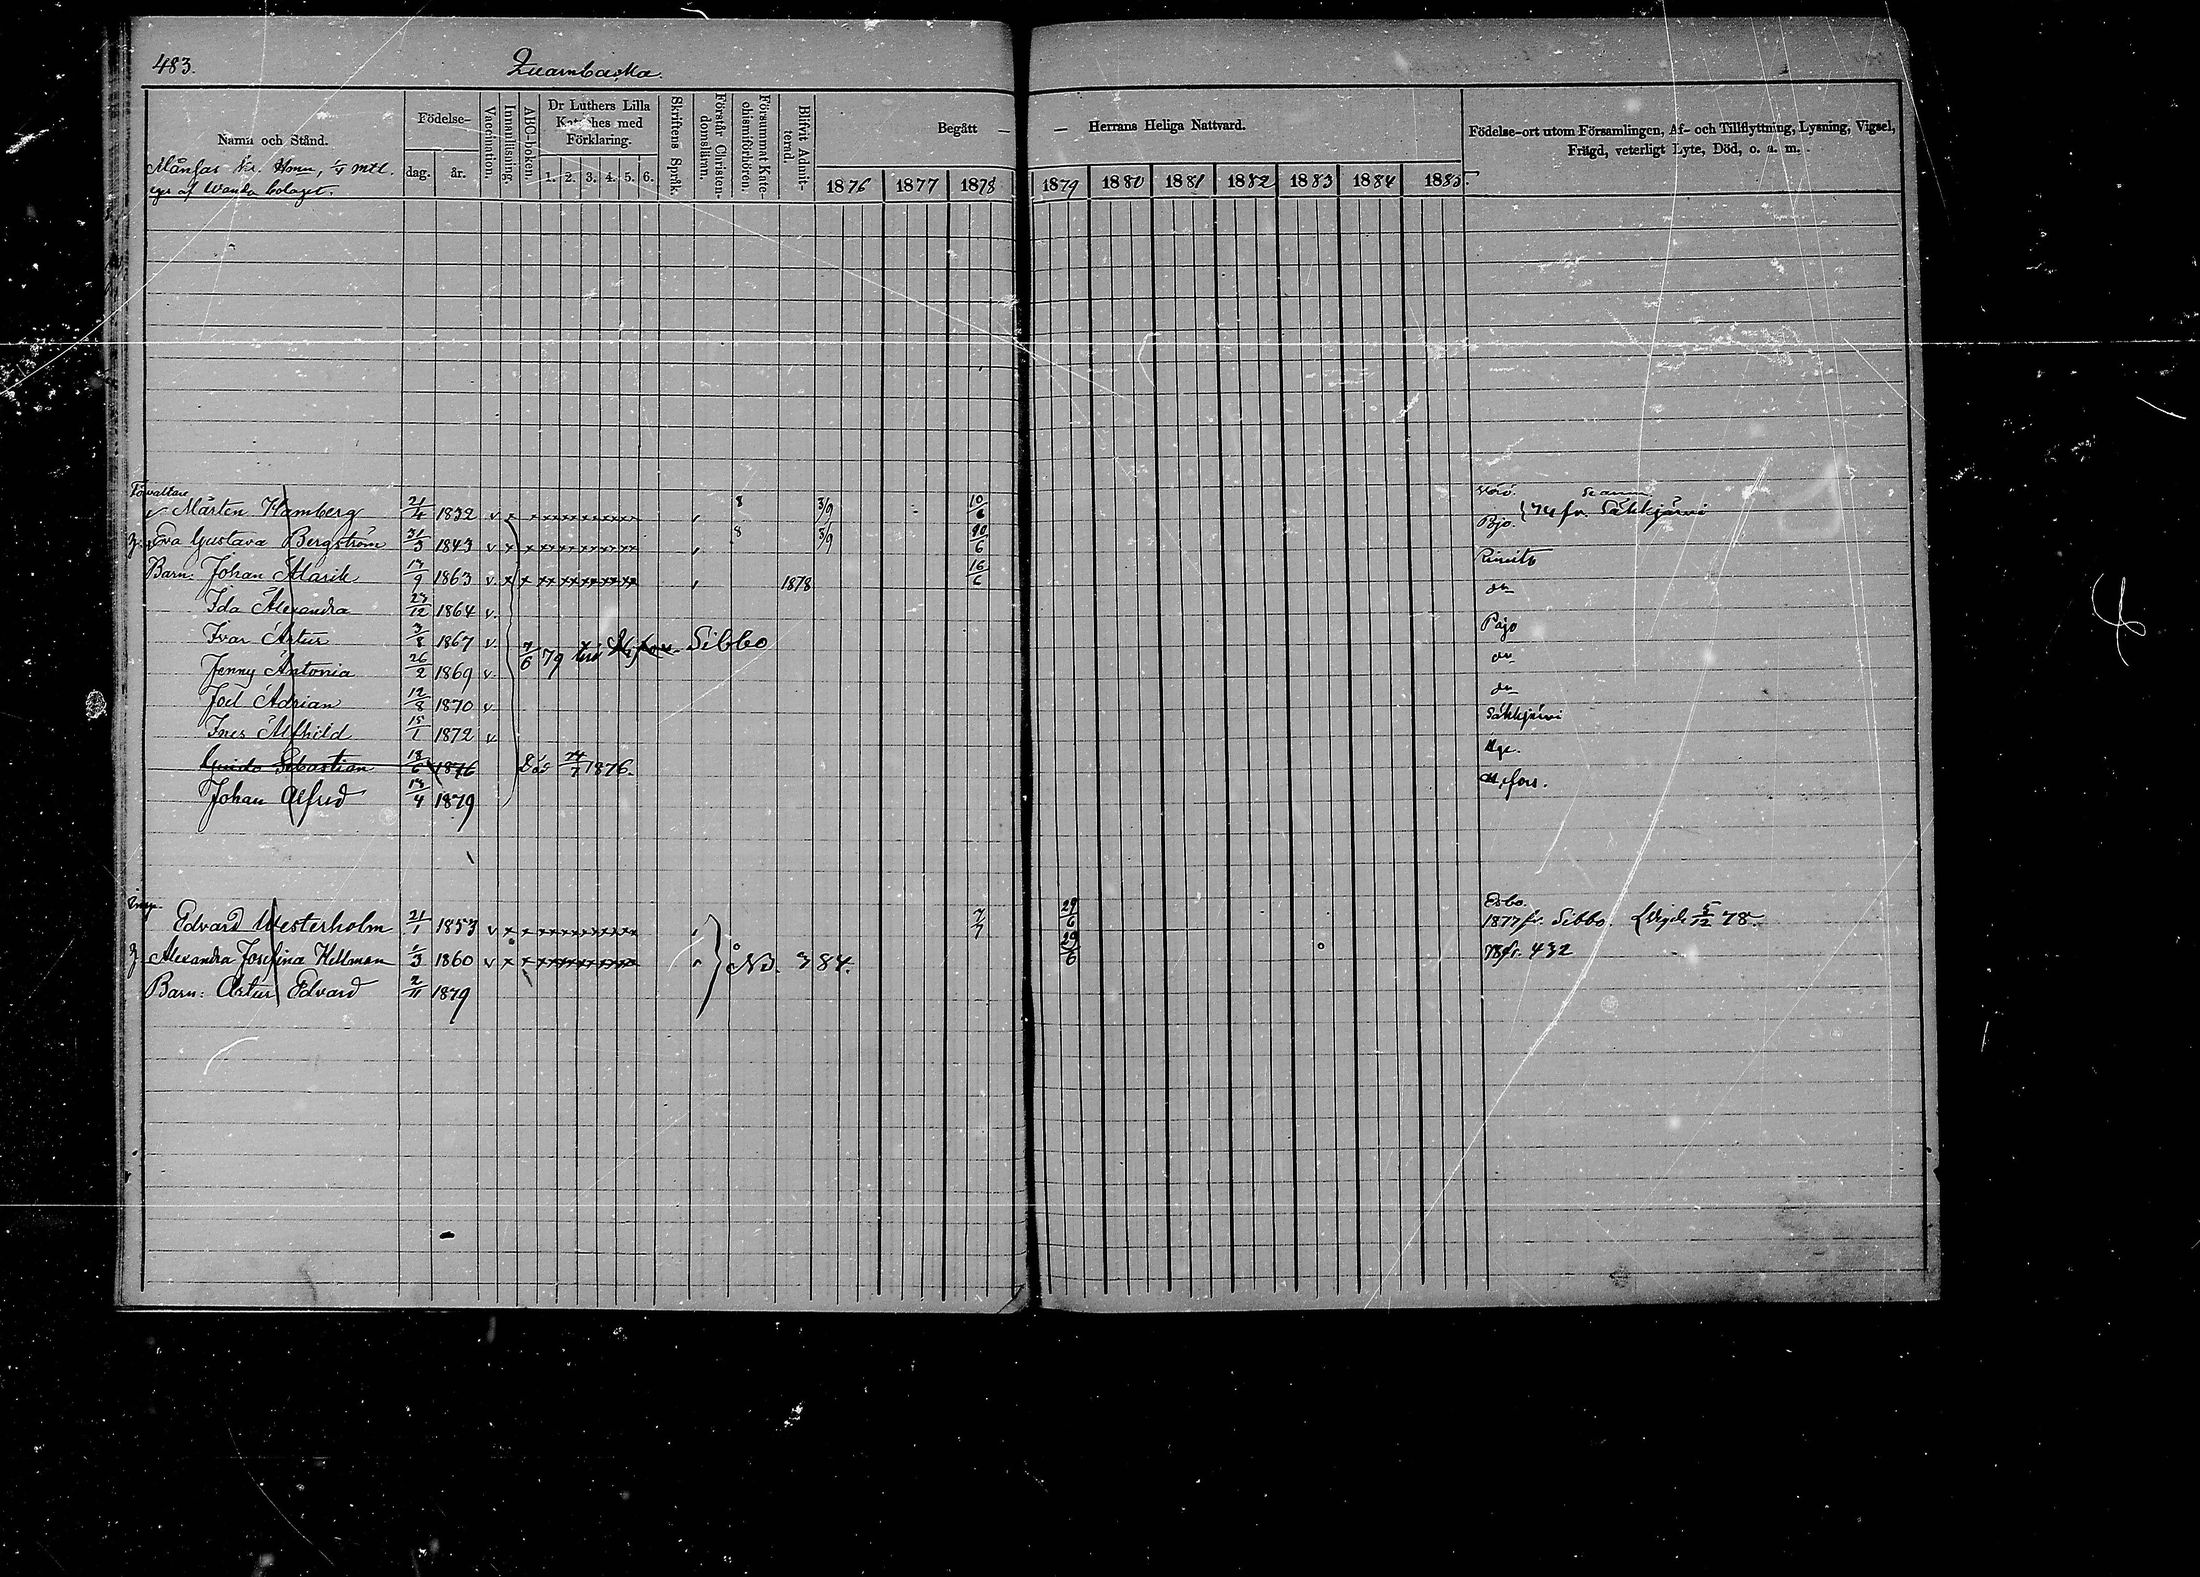 483.
Qvarnbacka.
Namn och Stånd.
Födelse-
dag.
år.
Vaccination.
Innanläsning.
ABC-boken.
Dr Luthers Lilla
Kateches med
Förklaring.
1. 2. 3. 4. 5. 6.
Skriftens Språk.
Förstår Christen-
domsläran.
Försummat Kate-
chismiförhören.
Blifvit Admit-
terad.
Begått —
— Herrans Heliga Nattvard.
Födelse-ort utom Församlingen, Af- och Tillflyttning, Lysning, Vigsel,
Frägd, veterligt Lyte, Död, o. s. m.
Månsas Hemm, 1/4 mtl.
ege af Wanda bolaget.
1876 1877 1878 1879 1880 1881 1882 1883 1884 1885
Förvaltare
Mårten Hamberg 21/4 1832 v 8 3/9 10/6 Vörö.
Eva Gustava Bergström 31/3 1843 v 8 3/9 10/6 Bjo. 74 fr. Säkkjärvi
Barn: Johan Alarik 13/9 1863 v. 1878 16/6 Rimito
Ida Alexandra 23/12 1864 v. do
Ivar Artur 3/8 1867 v. Pojo
7/6 79 till H:fors Sibbo
Jenny Antonia 26/2 1869 v. do
Joel Adrian 12/8 1870 v do
Ines Alfhild 15/1 1872 v. Säkkjärvi
Guido Sebastian 18/6 1876 Död 24/7 1876. Hge.
Johan Alfred 13/4 1879 H:fors.
Insp.
Edvard Westerholm 21/1 1853 v 7/7 29/6 Esbo.
1877 fr. Sibbo. Vigde 5/12 78.
Alexandra Josefina Hellman 1/3 1860 v 29/6 78 fr. 432
No. 384.
Barn: Artur Edvard 2/11 1879